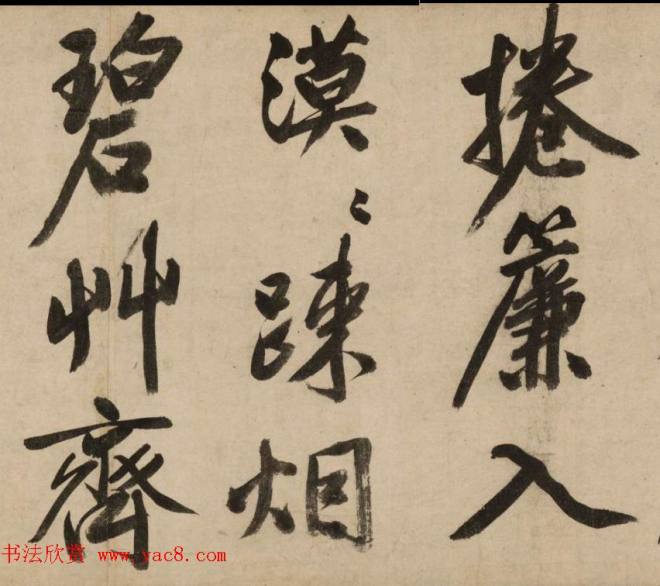 捲簾入
漠〻踈烟
碧艸齊
书法欣赏 www.yac8.com